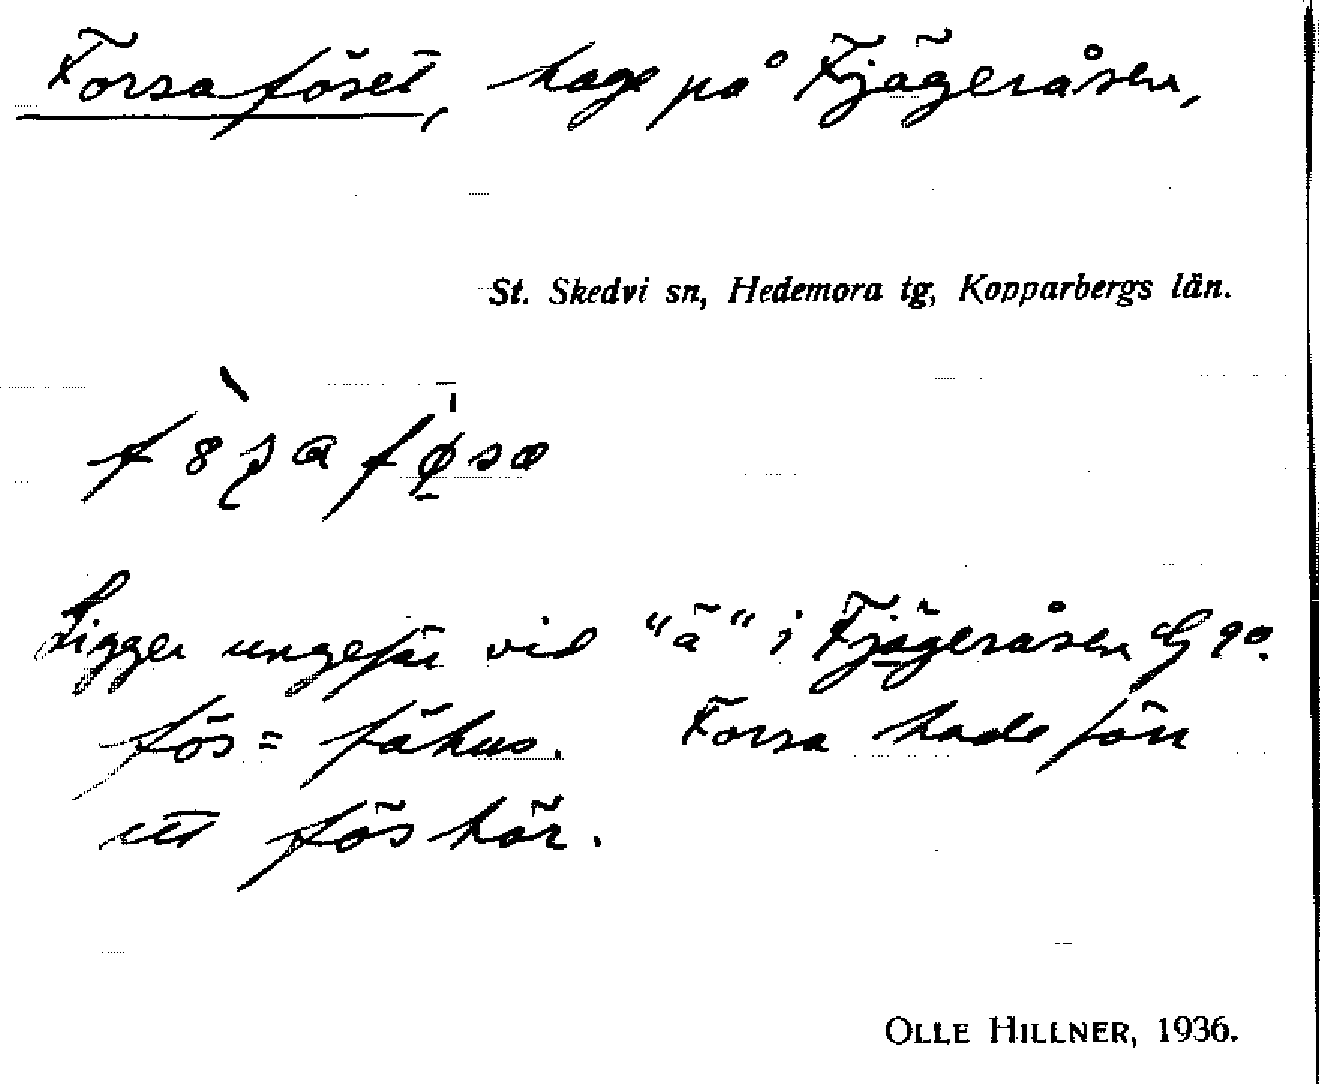 Forsaföset, hage på Fjägeråsen,
St. Skedvi sn, Hedemora tg, Kopparbergs län.
Ligger ungefär vid "ä" i Fjägeråsen G 90.
fös = fähus. Forsa hade förr
ett fös här.
OLLE HILLNER, 1936.